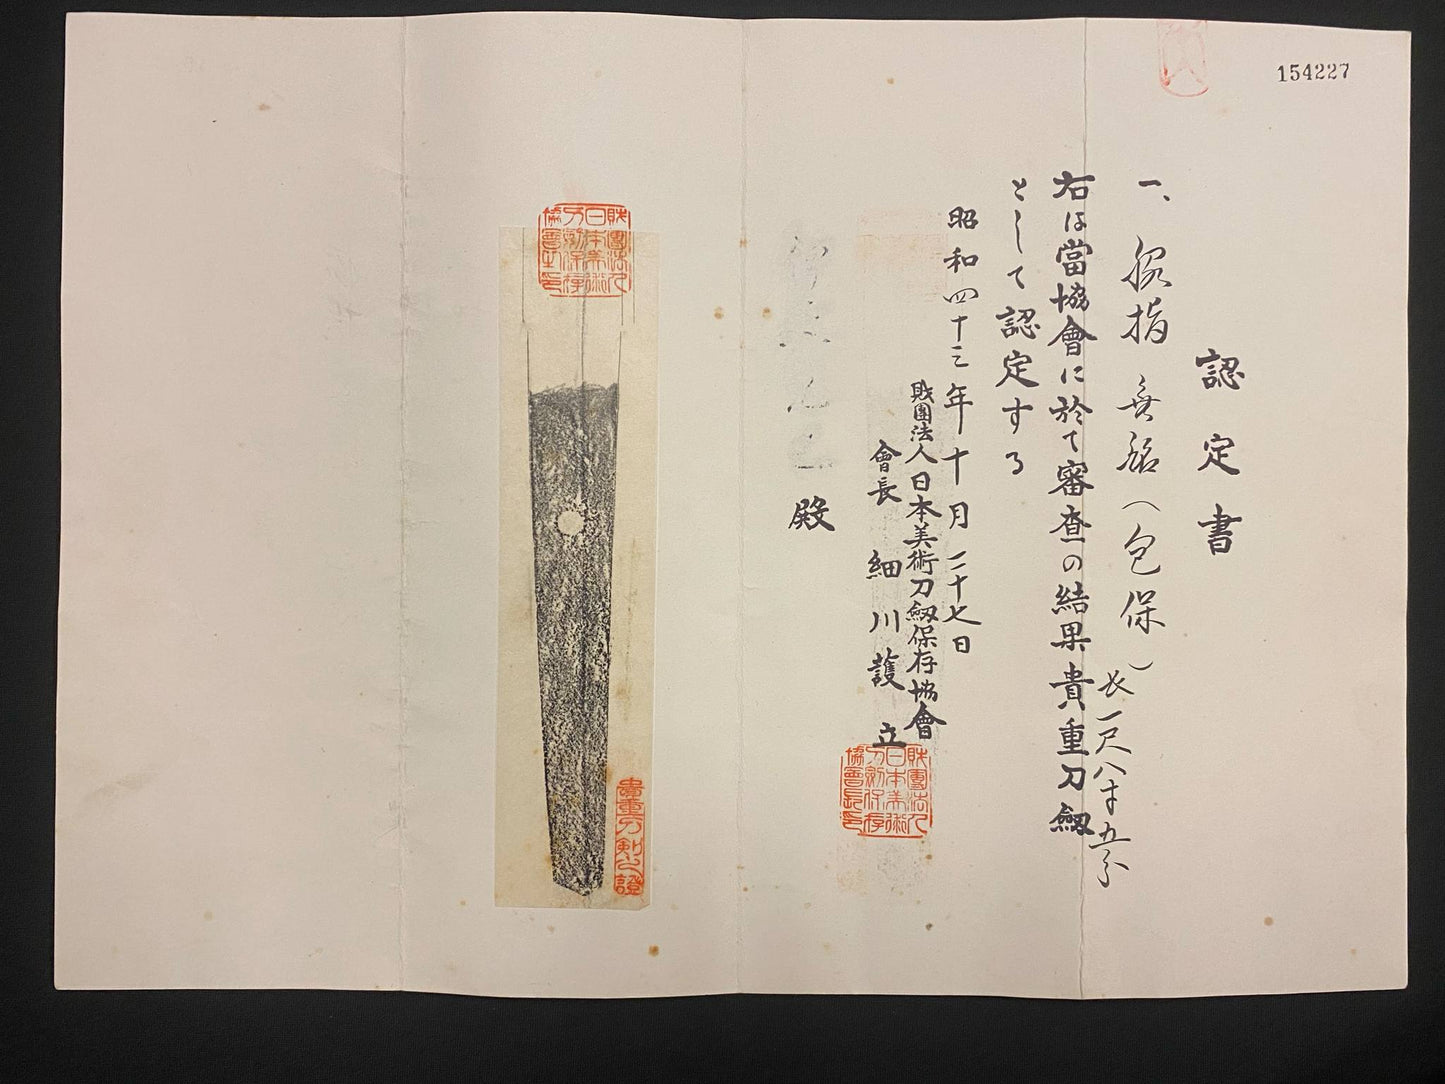 154227
認定書
一、脇指 無銘(包保)長一尺八寸五分
右は當協會に於て審査の結果貴重刀劔
として認定する
昭和四十三年十月二十七日
財團法人日本美術刀劔保存協會
會長 細川護立
財團法人日本美術刀剣保存協會長印
殿
財團法人日本美術刀剣保存協會之印
貴重刀剣之證